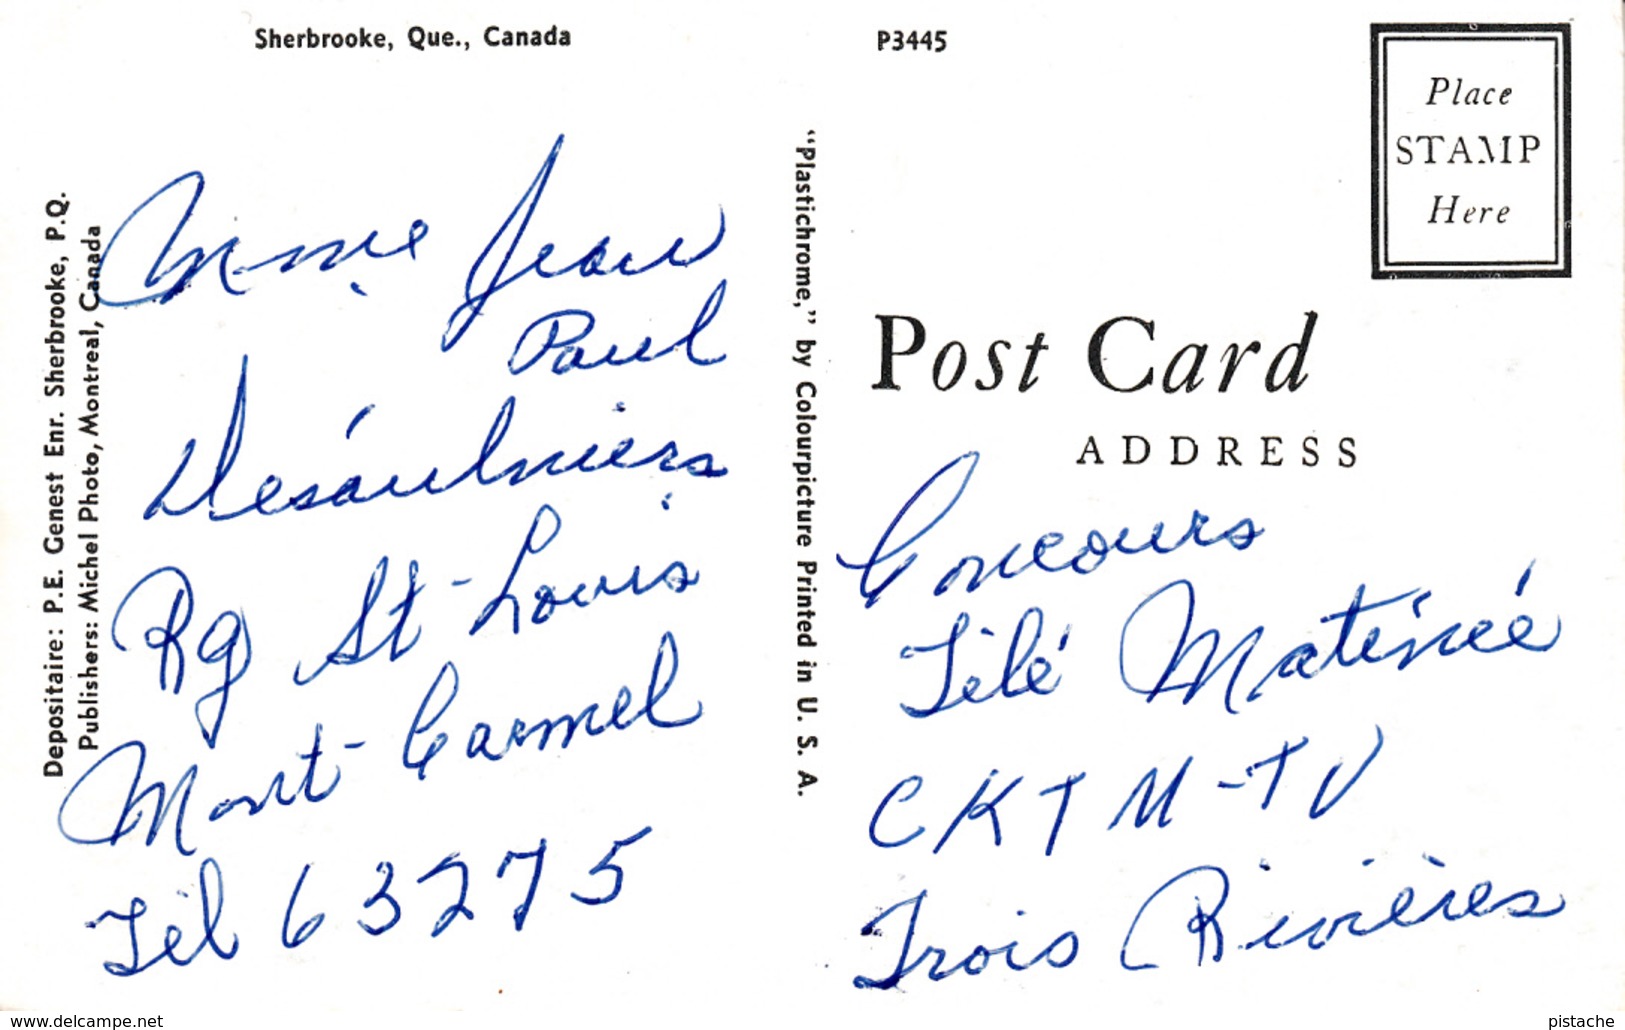 Sherbrooke, Que., Canada
P3445
Place
STAMP
Here
Depositaire: P.E. Genest Enr. Sherbrooke, P.Q.
Publishers: Michel Photo, Montreal, Canada
"Plastichrome," by Colourpicture Printed in U. S. A.
Post Card
ADDRESS
Mme Jean
Paul
Desáulniers
Rg St-Louis
Mont-Carmel
Tél 63275
Concours
Télé Matinée
CKTM-TV
Trois Rivières
www.delcampe.net
pistache